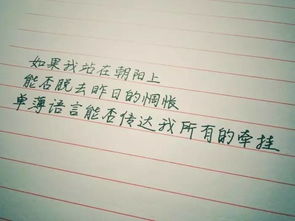 如果我站在朝阳上
能否脱去昨日的惆怅
单薄语言能否传达我所有的牵挂